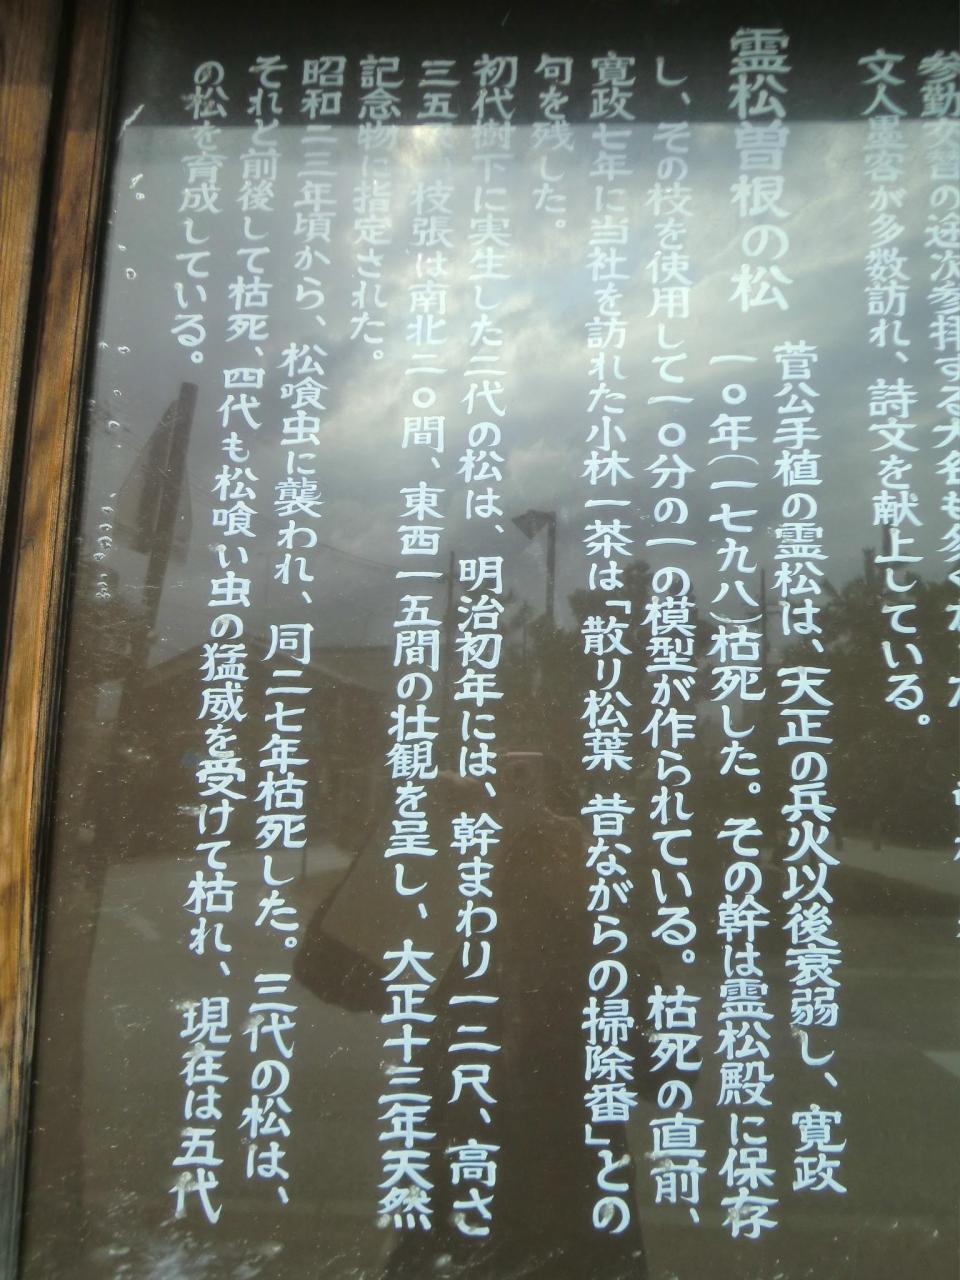 参勤交替の途次参拝する大名も多く
文人墨客が多数訪れ、詩文を献上している。
霊松曽根の松
菅公手植の霊松は、天正の兵火以後衰弱し、寛政
一〇年(一七九八)枯死した。その幹は霊松殿に保存
し、その枝を使用して一〇分の一の模型が作られている。枯死の直前、
寛政七年に当社を訪れた小林一茶は「散り松葉 昔ながらの掃除番」との
句を残した。
初代樹下に実生した二代の松は、明治初年には、幹まわり一二尺、高さ
三五 枝張は南北二〇間、東西一五間の壮観を呈し、大正十三年天然
記念物に指定された。
昭和二三年頃から、松喰虫に襲われ、同二七年枯死した。三代の松は、
それと前後して枯死、四代も松喰い虫の猛威を受けて枯れ、現在は五代
の松を育成している。